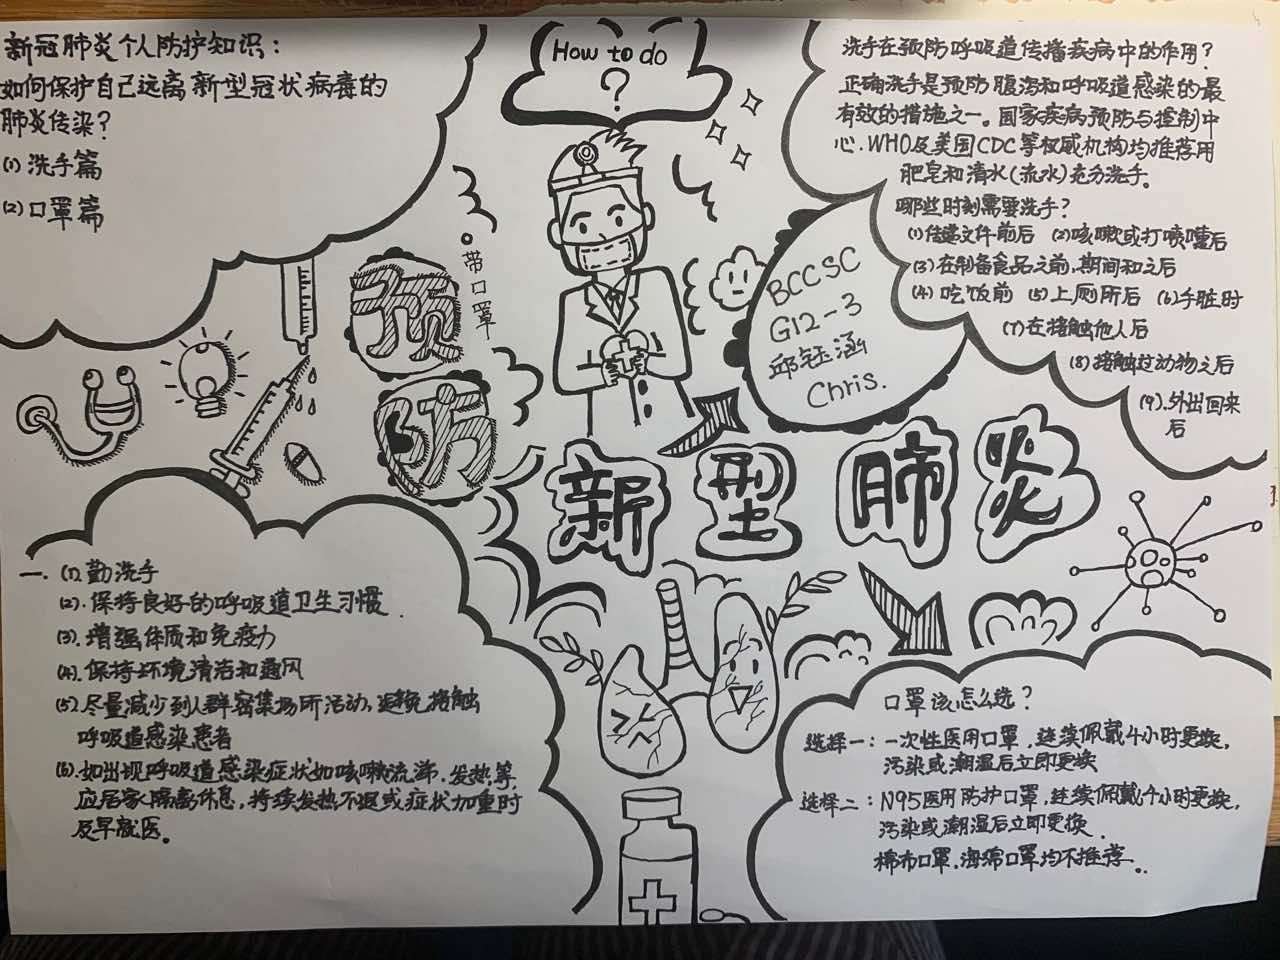 新冠肺炎个人防护知识：
如何保护自己远离新型冠状病毒的
肺炎传染？
(1) 洗手篇
(2) 口罩篇
How to do
?
洗手在预防呼吸道传播疾病中的作用？
正确洗手是预防腹泻和呼吸道感染的最
有效的措施之一。国家疾病预防与控制中
心、WHO及美国CDC等权威机构均推荐用
肥皂和清水(流水)充分洗手。
哪些时刻需要洗手？
(1)传递文件前后 (2)咳嗽或打喷嚏后
(3)在制备食品之前,期间和之后
(4) 吃饭前 (5)上厕所后 (6)手脏时
(7)在接触他人后
(8)接触过动物之后
(9).外出回来
后
带口罩
预
防
BCCSC
G12-3
邱钰涵
Chris.
新型肺炎
一. (1).勤洗手
(2).保持良好的呼吸道卫生习惯.
(3).增强体质和免疫力
(4).保持环境清洁和通风
(5).尽量减少到人群密集场所活动,避免接触
呼吸道感染患者
(6).如出现呼吸道感染症状如咳嗽流涕,发热等,
应居家隔离休息,持续发热不退或症状加重时
及早就医。
口罩该怎么选？
选择一：一次性医用口罩,连续佩戴4小时更换,
污染或潮湿后立即更换
选择二：N95医用防护口罩,连续佩戴4小时更换,
污染或潮湿后立即更换.
棉布口罩,海绵口罩均不推荐.